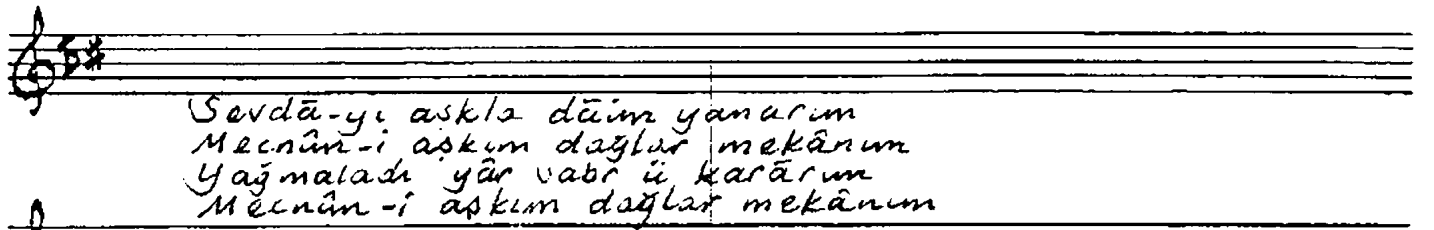 Sevdâ-yı aşkla dâim yanarım
Mecnûn-i aşkım dağlar mekânım
Yağmaladı yâr sabr ü karârım
Mecnûn-i aşkım dağlar mekânım